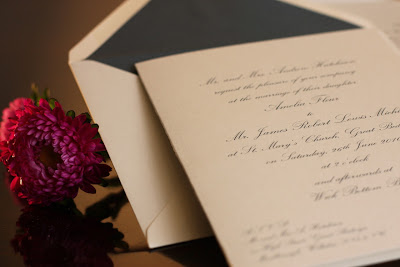 Mr. and Mrs. Andrew Hutchison
request the pleasure of your company
at the marriage of their daughter
Amelia Fleur
to
Mr. James Robert Lewis
at St. Mary's Church, Great
on Saturday, 26th June
at 2 o'clock
and afterwards at
Wick Bottom,
R S V P
Mr and Mrs A Hutchison
High Street, Great
Marlborough, Wiltshire,